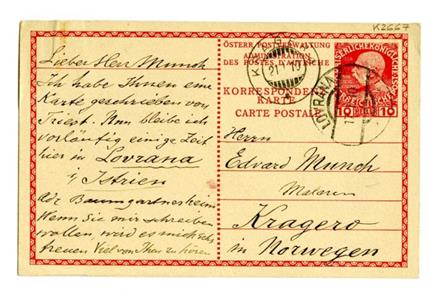 K2667
Lieber Herr Munch
Ich habe Ihnen eine
Karte geschrieben von
Triest. Nun bleibe ich
vorläufig einige Zeit
hier in Lovrana
Istrien
Adr Baumgartnerheim
Wenn Sie mir schreiben
wollen, wird es mich sehr
freuen Viel von Ihnen zu hören
ÖSTERR. POSTVERWALTUNG
ADMINISTRATION
DES POSTES D'AUTRICHE
KORRESPONDENZ
KARTE
CARTE POSTALE
10 10
Herrn
Edvard Munch
Maleren
Kragerø
in Norwegen